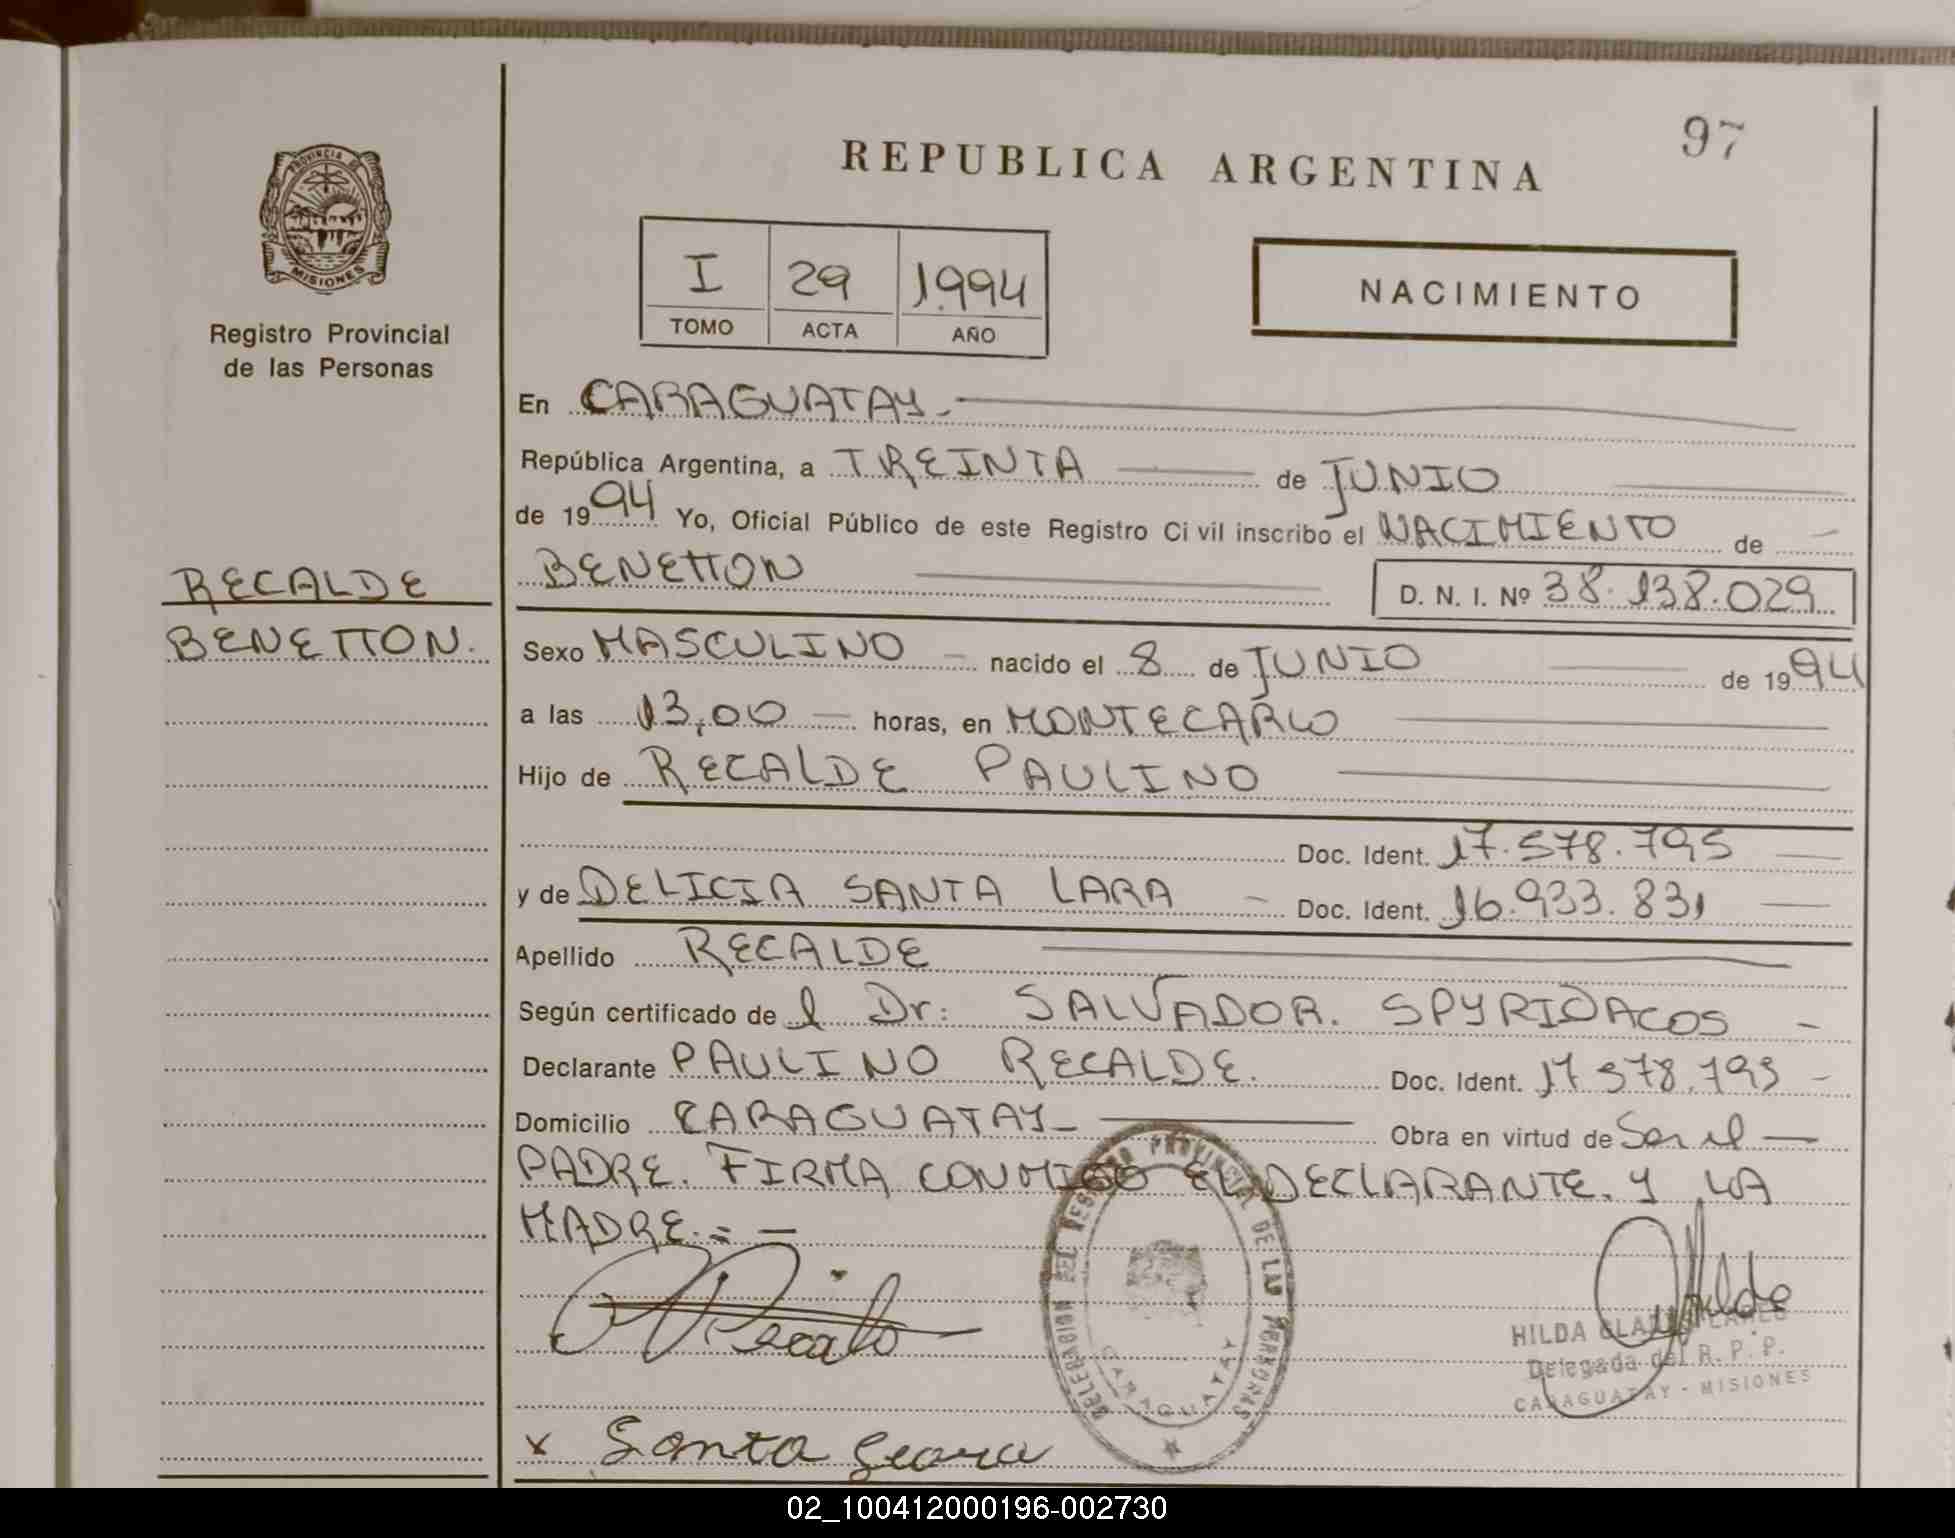 97
REPUBLICA ARGENTINA
PROVINCIA DE
MISIONES
Registro Provincial
de las Personas
I 29 1994
TOMO ACTA AÑO
NACIMIENTO
En CARAGUATAY
República Argentina, a TREINTA de JUNIO
de 1994 Yo, Oficial Público de este Registro Ci vil inscribo el NACIMIENTO de
BENETTON D. N. I. Nº 38.138.029
RECALDE
BENETTON.
Sexo MASCULINO nacido el 8 de JUNIO de 1994
a las 13,00 horas, en MONTECARLO
Hijo de RECALDE PAULINO
Doc. Ident. 17.578.795
y de DELICIA SANTA LARA Doc. Ident. 16.933.831
Apellido RECALDE
Según certificado de l Dr: SALVADOR. SPYRIDACOS
Declarante PAULINO RECALDE. Doc. Ident. 17 578.795
Domicilio CARAGUATAY Obra en virtud de Ser el
PADRE. FIRMA CONMIGO EL DECLARANTE. Y LA
MADRE.=
DELEGACION DEL REGISTRO PROVINCIAL DE LAS PERSONAS
CARAGUATAY
HILDA
Delegada del R. P. P.
CARAGUATAY - MISIONES
x Santa
02_100412000196-002730